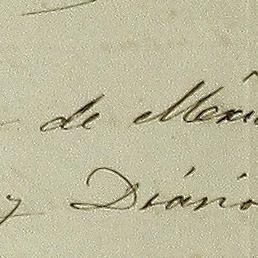 de Méxi
y Diário